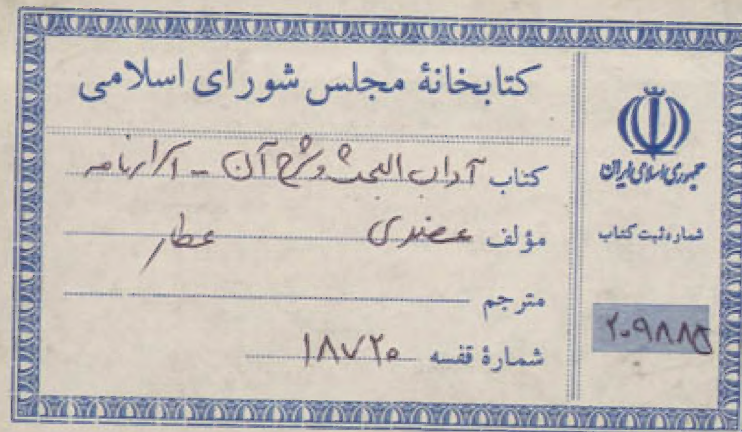 کتابخانهٔ مجلس شورای اسلامی
کتاب آداب البحث و شرح آن - اسرارنامه
مؤلف عضدی عطار
مترجم
شمارهٔ قفسه ۱۸۷۲۰
جمهوری اسلامی ایران
شماره ثبت کتاب
۲۰۹۸۸۵